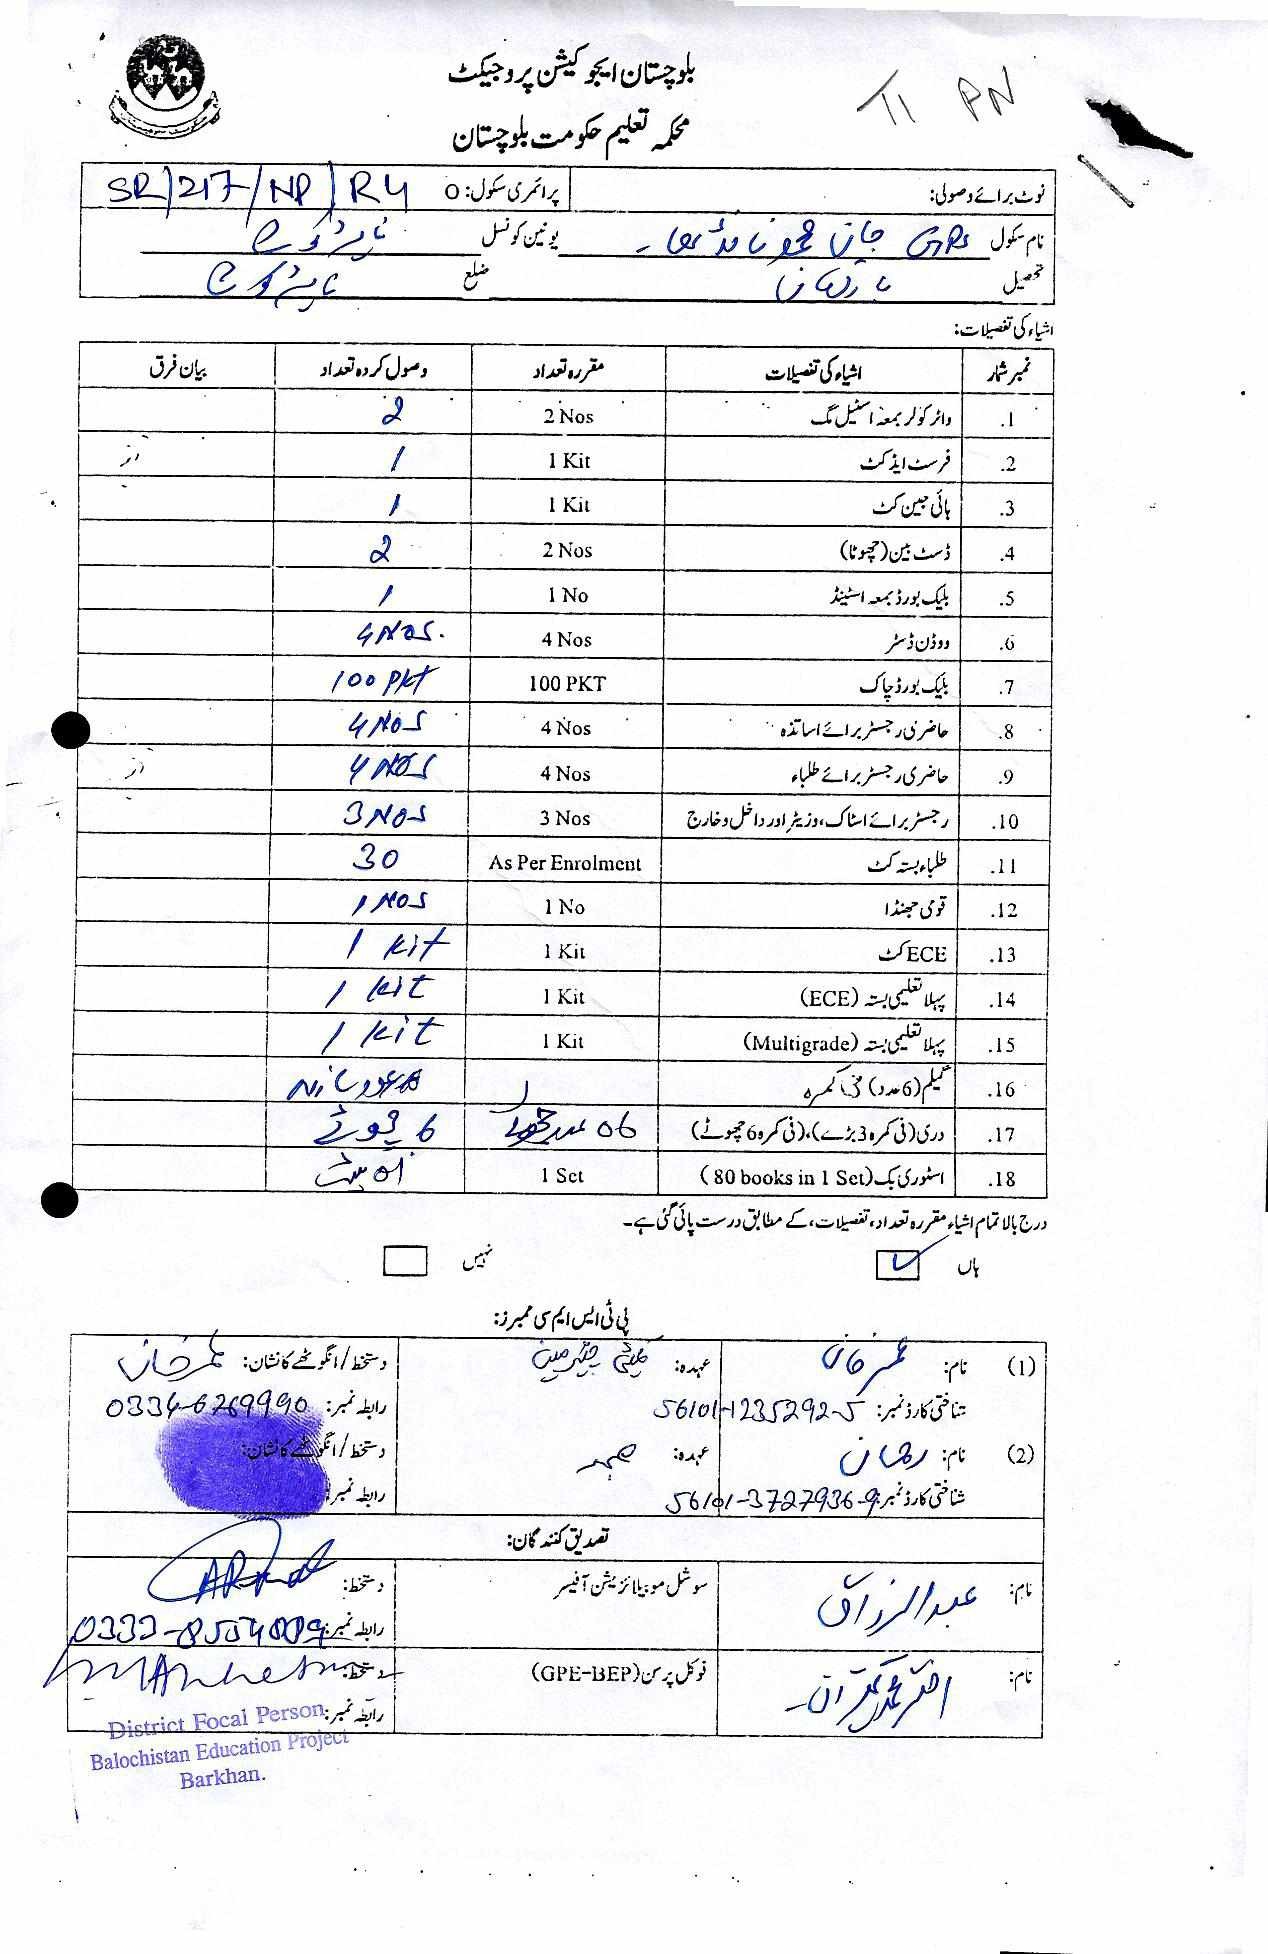 بلوچستان ایجوکیشن پروجیکٹ
TI PN
محکمہ تعلیم حکومت بلوچستان
نوٹ برائے وصولی: پرائمری سکول: 0 SR/217/NP/R4
نام سکول GPS جان محمد یونین کونسل
تحصیل بارکھان ضلع
اشیاء کی تفصیلات:
نمبر شمار اشیاء کی تفصیلات مقررہ تعداد وصول کردہ تعداد بیان فرق
1. واٹر کولر بمعہ اسٹیل مگ 2 Nos 2
2. فرسٹ ایڈ کٹ 1 Kit 1
3. ہائی جین کٹ 1 Kit 1
4. ڈسٹ بین (چھوٹا) 2 Nos 2
5. بلیک بورڈ بمعہ اسٹینڈ 1 No 1
6. ووڈن ڈسٹر 4 Nos 4 Nos.
7. بلیک بورڈ چاک 100 PKT 100 Pkt
8. حاضری رجسٹر برائے اساتذہ 4 Nos 4 Nos
9. حاضری رجسٹر برائے طلباء 4 Nos 4 Nos
10. رجسٹر برائے اسٹاک، وزیٹر اور داخل و خارج 3 Nos 3 Nos
11. طلباء بستہ کٹ As Per Enrolment 30
12. قومی جھنڈا 1 No 1 Nos
13. ECE کٹ 1 Kit 1 Kit
14. پہلا تعلیمی بستہ (ECE) 1 Kit 1 Kit
15. پہلا تعلیمی بستہ (Multigrade) 1 Kit 1 Kit
16. (6 عدد) فی کمرہ
17. دری (فی کمرہ 3 بڑے)، (فی کمرہ 6 چھوٹے) 06 عدد چھوٹے 6 چھوٹے
18. اسٹوری بک (80 books in 1 Set) 1 Set
درج بالا تمام اشیاء مقررہ تعداد، تفصیلات، کے مطابق درست پائی گئی ہے۔
ہاں ✓ نہیں
پی ٹی ایس ایم سی ممبرز:
(1) نام: عمر خان عہدہ: چیئرمین دستخط/انگوٹھے کا نشان: عمر خان
شناختی کارڈ نمبر: 56101-1235292-5 رابطہ نمبر: 0334-6269990
(2) نام: عہدہ: ممبر دستخط/انگوٹھے کا نشان:
شناختی کارڈ نمبر: 56101-3727936-9 رابطہ نمبر:
تصدیق کنندگان:
نام: عبدالرزاق سوشل موبیلائزیشن آفیسر دستخط:
رابطہ نمبر:
نام: فوکل پرسن (GPE-BEP) دستخط:
رابطہ نمبر:
District Focal Person
Balochistan Education Project
Barkhan.